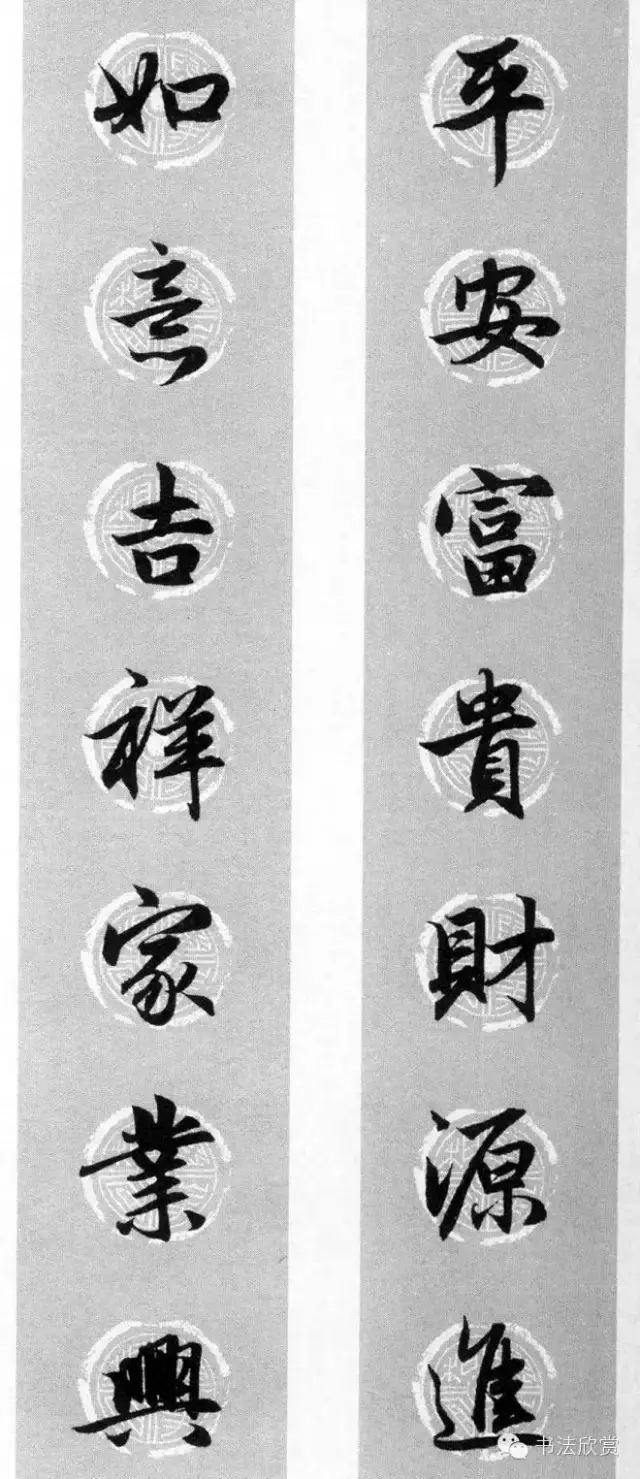 平安富貴財源進
如意吉祥家業興
书法欣赏